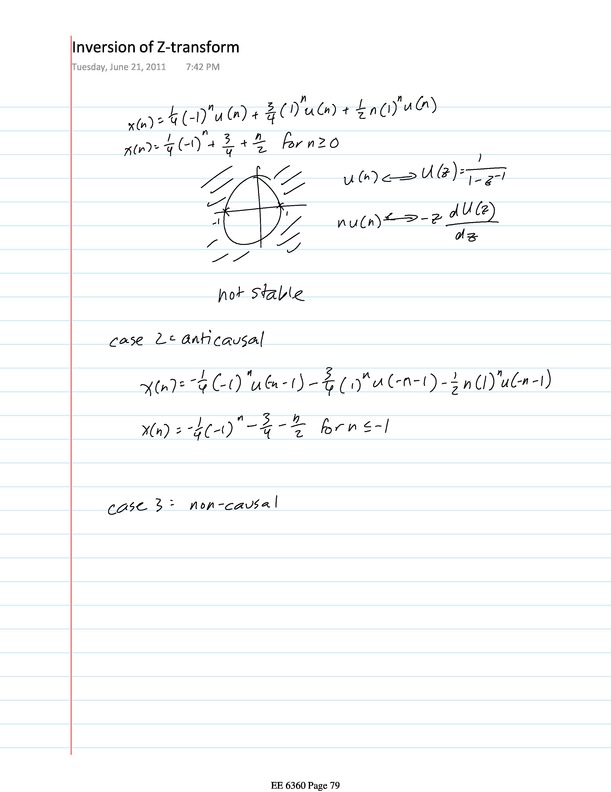 Inversion of Z-transform
Tuesday, June 21, 2011 7:42 PM
x(n) = 1/4 (-1)^n u(n) + 3/4 (1)^n u(n) + 1/2 n(1)^n u(n)
x(n) = 1/4 (-1)^n + 3/4 + n/2 for n ≥ 0
u(n) ⟷ U(z) = 1/(1-z^-1)
nu(n) ⟷ -z dU(z)/dz
-1 1
not stable
case 2: anticausal
x(n) = -1/4 (-1)^n u(-n-1) - 3/4 (1)^n u(-n-1) - 1/2 n(1)^n u(-n-1)
x(n) = -1/4 (-1)^n - 3/4 - n/2 for n ≤ -1
case 3: non-causal
EE 6360 Page 79